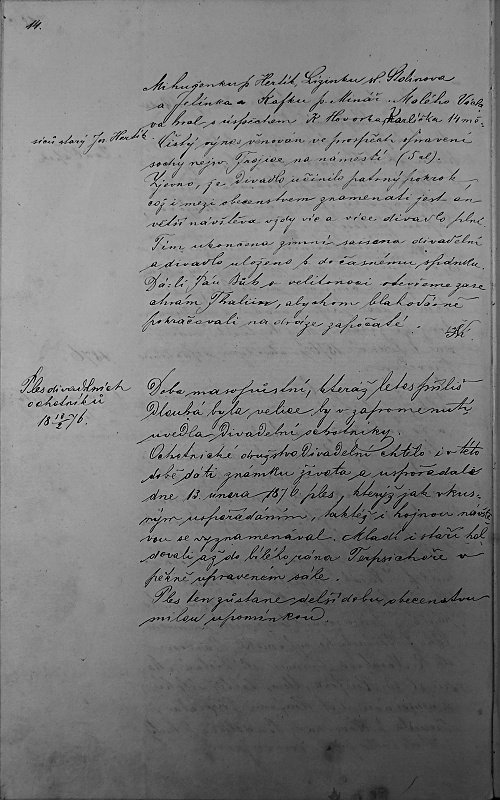 14.
Mrhuženku p. Hertík, Lizinku sl. Stolinova
a Jelínka a Kafku p. Menář. Malého Václa-
va hral s úspěchem R. Hovorka, Karlíčka 14 mě-
síců starý Jos. Hertík.
Čistý výnos věnován ve prospěch spravení
sochy nejsv. Trojice na náměstí (5 zl.).
Zjevno, že Divadlo učinilo patrný pokrok,
což i mezi obecenstvem znamenati jest an-
větší návštěva vždy více a více divadlo plní.
Tím ukončena zimní saisona divadelní
a divadlo uloženo k dočasnému spánku.
Dá-li Pán Bůh o velikonoci otevřeme zase
chrám Thaliin, abychom blahodárně
pokračovali na dráze započaté.
Ples divadelních
ochotníků
18 13/2 76.
Doba masopůstní, kteráž letos příliš
dlouhá byla, velice by v zapomenutí
uvedla divadelní ochotníky.
Ochotnické družstvo divadelní chtělo i v této
době dáti známku života a uspořádalo
dne 13. února 1876 ples, kterýž jak vkus-
ným uspořádáním, taktéž i hojnou návště
vou se vyznamenával. Mladí i staří hol-
dovali až do bílého rána Terpsichoře v
pěkně upraveném sále.
Ples ten zůstane delší dobu obecenstvu
milou upomínkou.